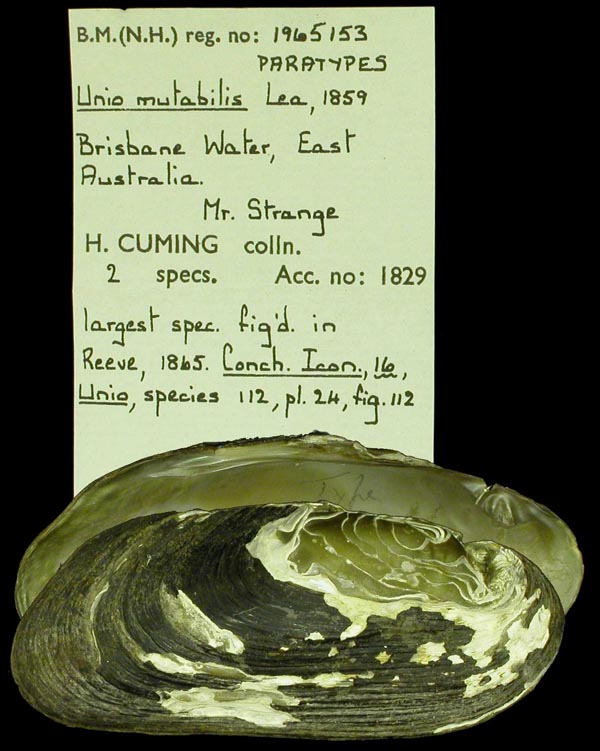 B.M.(N.H.) reg. no: 1965153
PARATYPES
Unio mutabilis Lea, 1859
Brisbane Water, East
Australia.
Mr. Strange
H. CUMING colln.
2 specs. Acc. no: 1829
largest spec. fig'd. in
Reeve, 1865. Conch. Icon., 16,
Unio, species 112, pl. 24, fig. 112
Type